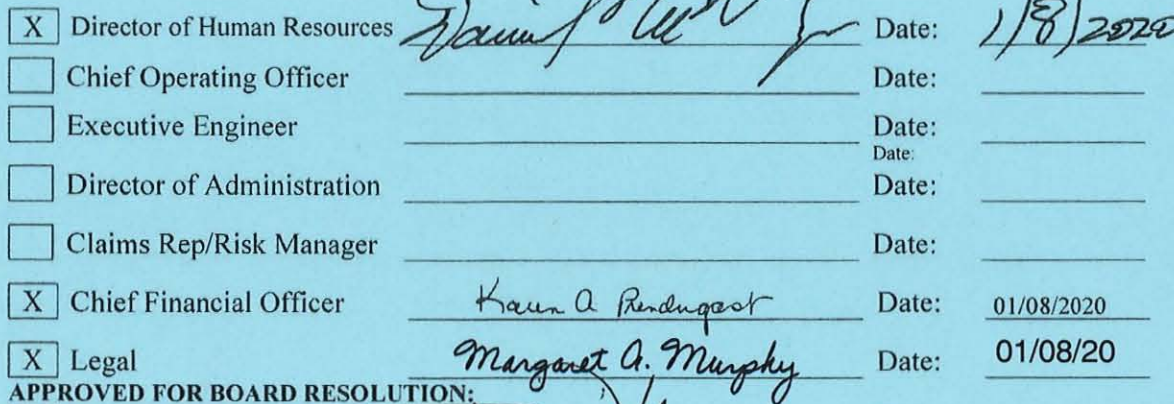 X Director of Human Resources Date: 1/8/2020
Chief Operating Officer Date:
Executive Engineer Date:
Date:
Director of Administration Date:
Claims Rep/Risk Manager Date:
X Chief Financial Officer Karen A Prendergast Date: 01/08/2020
X Legal Margaret A. Murphy Date: 01/08/20
APPROVED FOR BOARD RESOLUTION: